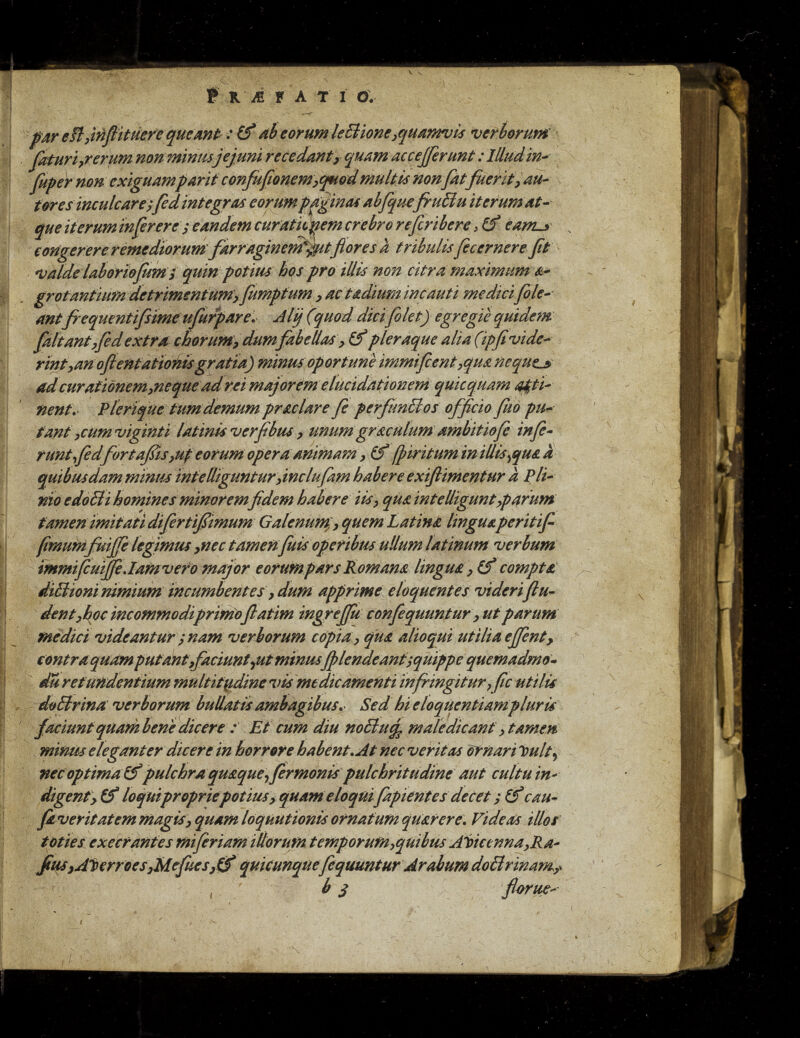 PRÆFATIO.
par est, instituere queant: & ab eorum lectione, quamvis verborum
saturi, rerum non minus jejuni recedant, quam accesserunt: Illud in-
super non exiguam parit confusionem, quod multis non sat fuerit, au-
tores inculcare; sed integras eorum paginas absque fructu iterum at-
que iterum inserere; eandem curationem crebro rescribere, & eam
congerere remediorum farraginem, ut flores à tribulis secernere sit
valde laboriosum; quin potius hos pro illis non citra maximum æ-
grotantium detrimentum, sumptum, ac tædium incauti medici sole-
ant frequentissime usurpare. Alij (quod dici solet) egregiè quidem
saltant, sed extra chorum, dum fabellas, & pleraque alia (ipsi vide-
rint, an ostentationis gratia) minus oportunè immiscent, quæ neque
ad curationem, neque ad rei majorem elucidationem quicquam atti-
nent. Plerique tum demum præclare se perfunctos officio suo pu-
tant, cum viginti latinis versibus, unum græculum ambitiose inse-
runt, sed fortassis, ut eorum opera animam, & spiritum in illis, quæ à
quibusdam minus intelliguntur, inclusam habere existimentur à Pli-
nio edocti homines minorem fidem habere iis, quæ intelligunt, parum
tamen imitati disertissimum Galenum, quem Latinæ linguæ peritis-
simum fuisse legimus, nec tamen suis operibus ullum latinum verbum
immiscuisse. Iam vero major eorum pars Romanæ linguæ, & comptæ
dictioni nimium incumbentes, dum apprime eloquentes videri stu-
dent, hoc incommodi primo statim ingressu consequuntur, ut parum
medici videantur; nam verborum copia, quæ alioqui utilia essent,
contra quam putant, faciunt, ut minus splendeant; quippe quemadmo-
dū retundentium multitudine vis medicamenti infringitur, sic utilis
doctrina verborum bullatis ambagibus. Sed hi eloquentiam pluris
faciunt quam bene dicere: Et cum diu noctuq; maledicant, tamen
minus eleganter dicere in horrore habent. At nec veritas ornari vult,
nec optima & pulchra quæque, sermonis pulchritudine aut cultu in-
digent, & loqui proprie potius, quam eloqui sapientes decet; & cau-
sæ veritatem magis, quam loquutionis ornatum quærere. Videas illos
toties execrantes miseriam illorum temporum, quibus Avicenna, Ra-
sius, Averroes, Mesues, & quicunque sequuntur Arabum doctrinam,
b 3 florue-